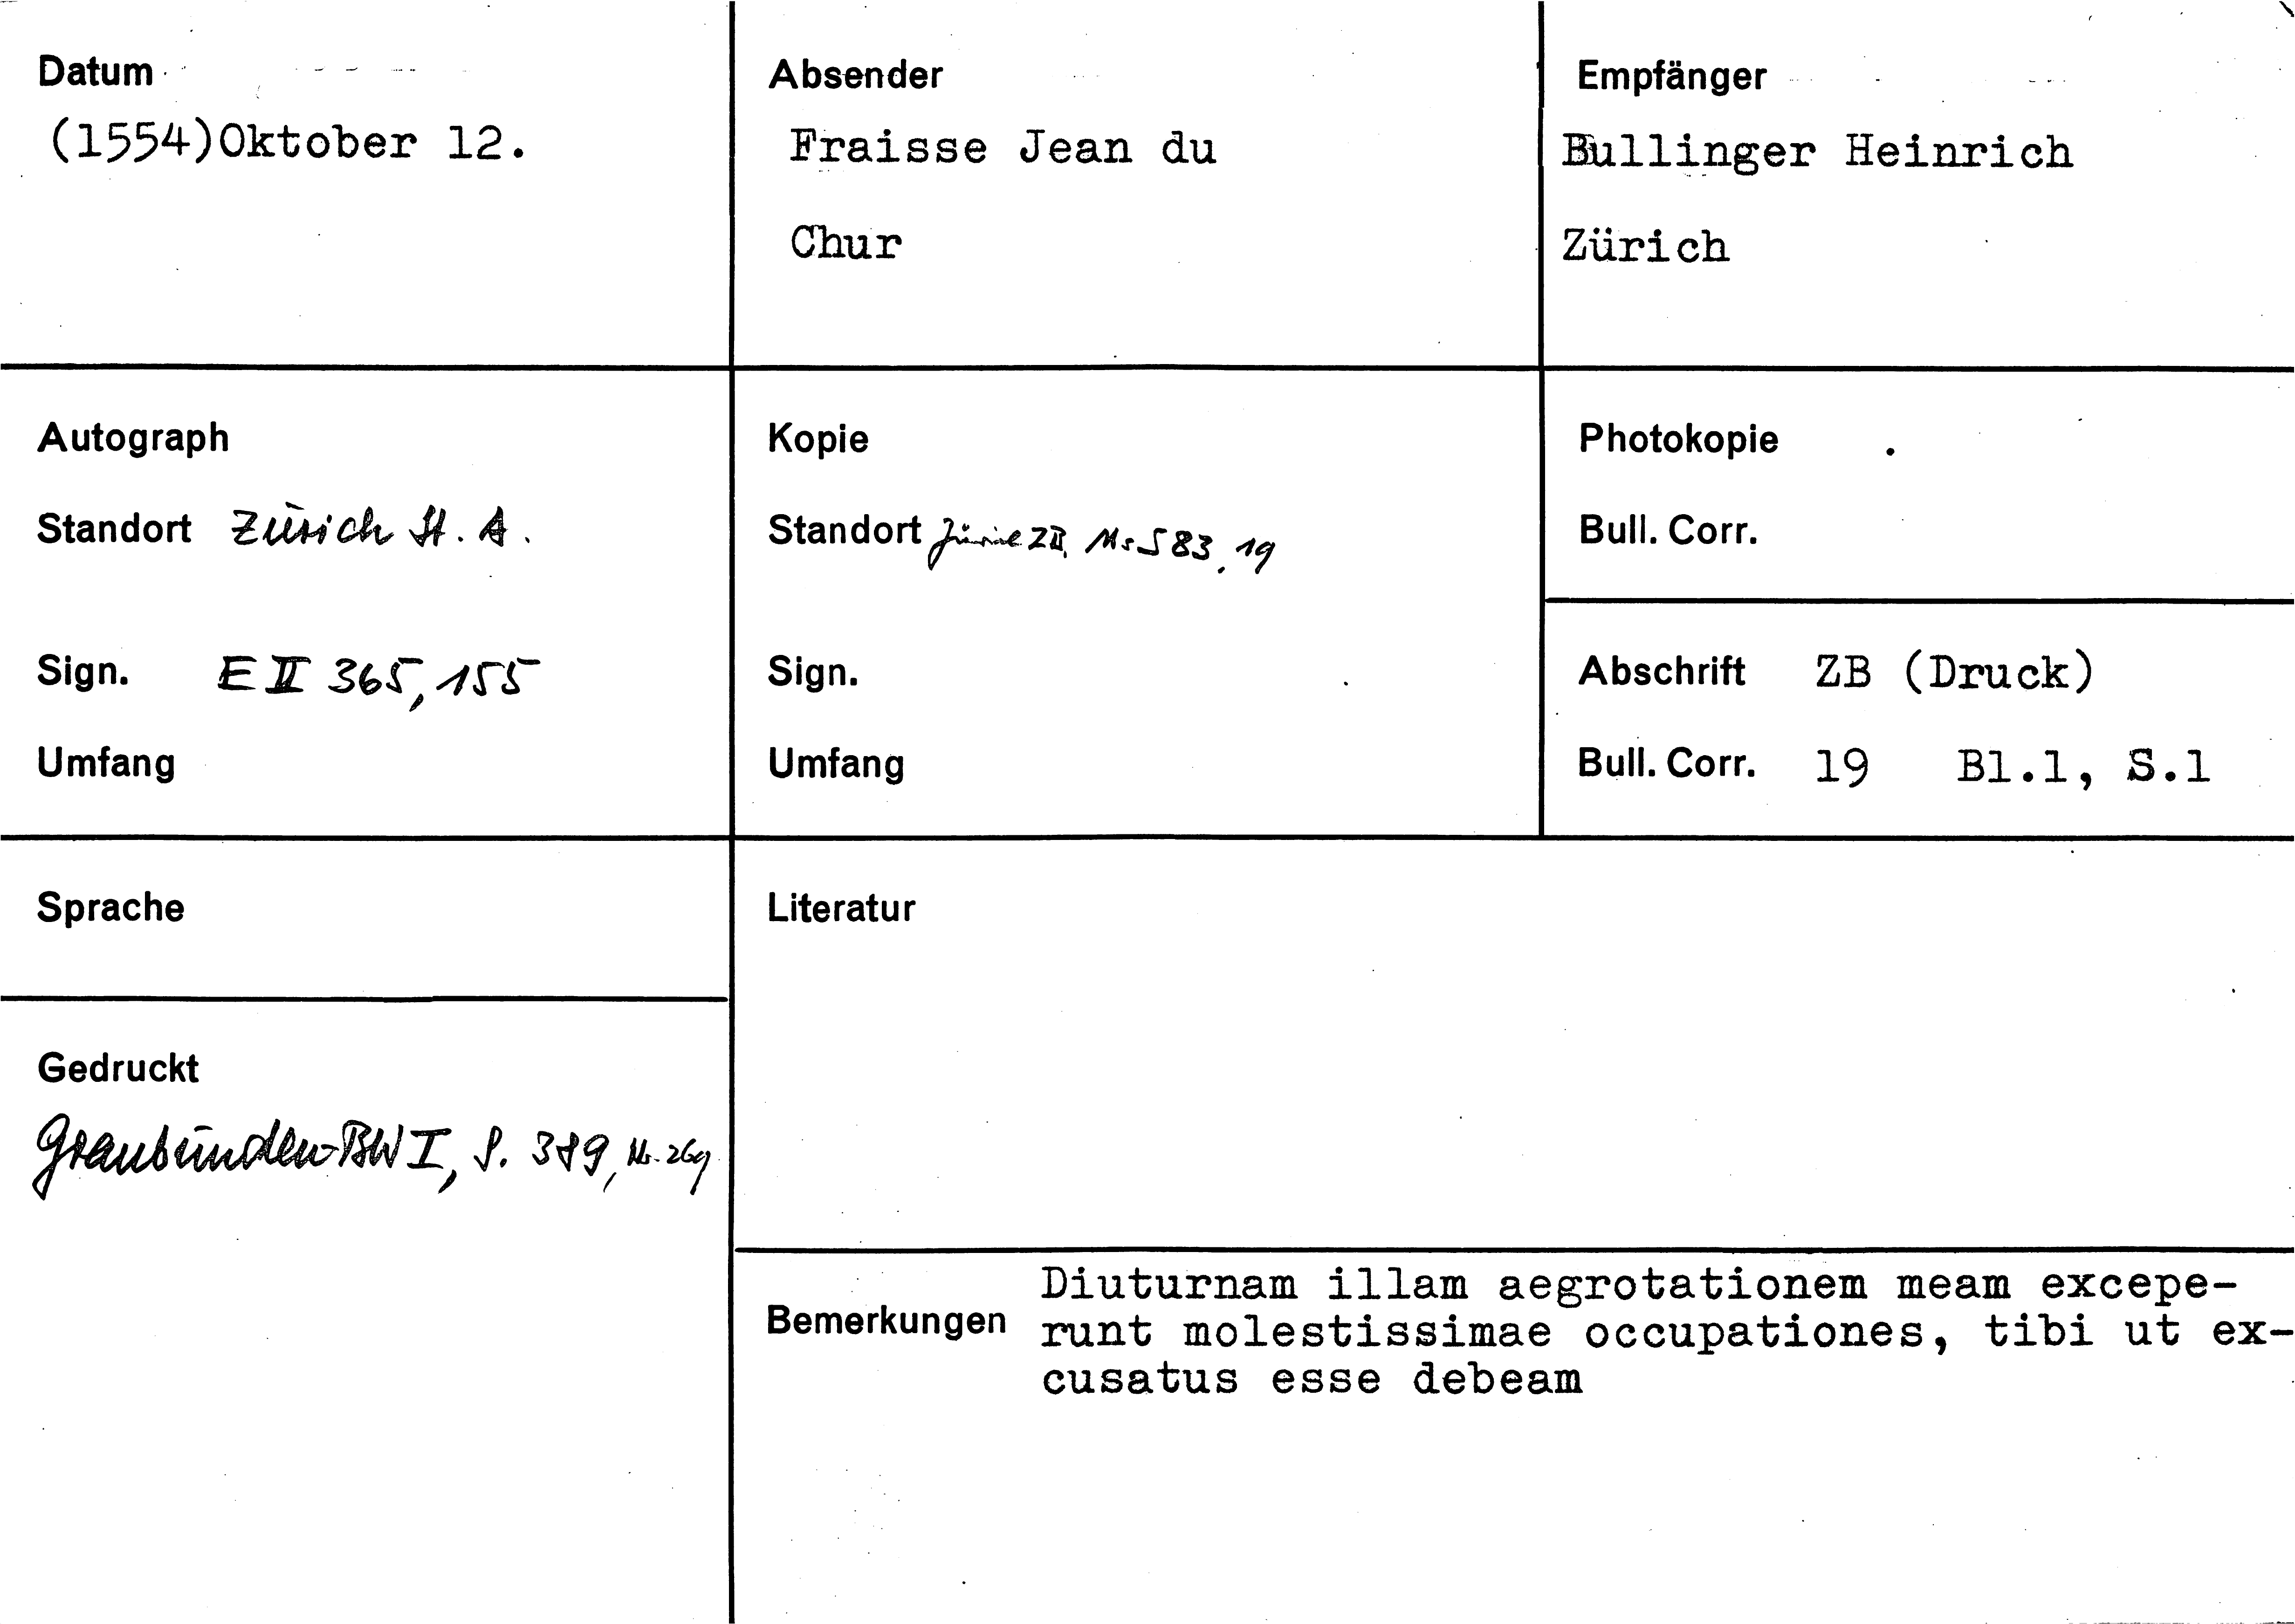 Datum
(1554)Oktober 12.
Absender
Fraisse Jean du
Chur
Empfänger
Bullinger Heinrich
Zürich
Autograph
Standort Zürich St. A.
Sign. E II 365, 155
Umfang
Kopie
Standort ZB, Ms S 83, 19
Sign.
Umfang
Photokopie
Bull. Corr.
Abschrift ZB (Druck)
Bull. Corr. 19 Bl.1, S.1
Sprache
Gedruckt
Graubünden-BW I, S. 389, Nr. 269
Literatur
Bemerkungen
Diuturnam illam aegrotationem meam excepe-
runt molestissimae occupationes, tibi ut ex-
cusatus esse debeam